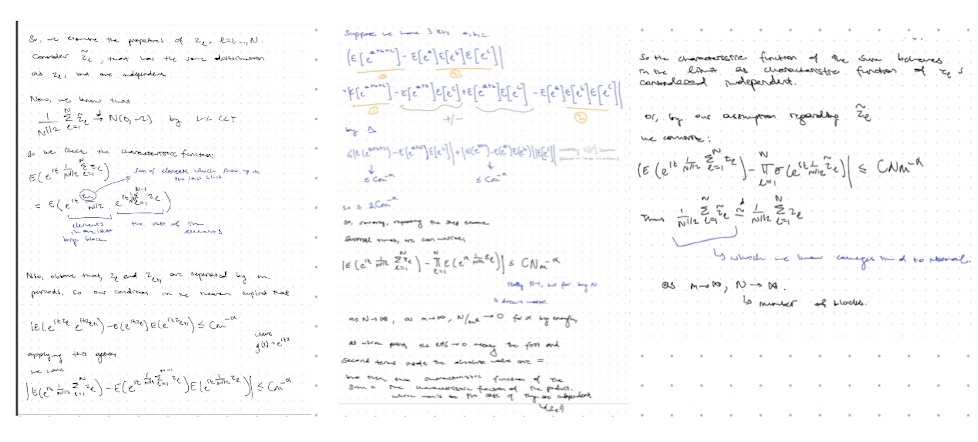 So, we examine the properties of Z_ℓ, ℓ=1,...,N.
Consider Z̃_ℓ, that has the same distribution
as Z_ℓ, but are independent.
Now, we know that
1/N^{1/2} Σ_{ℓ=1}^N Z̃_ℓ → N(0, Ω) by CLT
So we check the characteristic function
E(e^{it 1/N^{1/2} Σ_{ℓ=1}^N Z_ℓ})
sum of elements which show up in
the last block
= E(e^{it Z_N/N^{1/2}} e^{it 1/N^{1/2} Σ_{ℓ=1}^{N-1} Z_ℓ})
elements in last big block
the rest of the elements
Now, observe that, Z_ℓ and Z_{ℓ+1} are separated by m
periods, so our condition in the theorem implies that
|E(e^{itZ_ℓ} e^{itZ_{ℓ+1}}) - E(e^{itZ_ℓ})E(e^{itZ_{ℓ+1}})| ≤ Cm^{-α}
where g(z) = e^{itz}
applying this again
we have
|E(e^{it 1/N^{1/2} Σ_{ℓ=1}^N Z_ℓ}) - E(e^{it 1/N^{1/2} Σ Z_ℓ})E(e^{it 1/N^{1/2} Z_ℓ})| ≤ Cm^{-α}
Suppose we have 3 RVs a,b,c.
|E[e^{a+b+c}] - E[e^a]E[e^b]E[e^c]|
① ②
|E[e^{a+b+c}] - E[e^{a+b}]E[e^c] + E[e^{a+b}]E[e^c] - E[e^a]E[e^b]E[e^c]|
① +/- ②
by Δ
≤|E(e^{a+b+c}) - E[e^{a+b}]E[e^c]| + |E(e^{a+b}) - E[e^a]E[e^b]||E[e^c]|
≤ Cm^{-α} ≤ Cm^{-α}
so ≤ 2Cm^{-α}
So, repeating the step above
several times, we can write
|E(e^{it 1/N^{1/2} Σ_{ℓ=1}^N Z_ℓ}) - Π_{ℓ=1}^N E(e^{it 1/N^{1/2} Z_ℓ})| ≤ CNm^{-α}
really N-1, but for big N
it doesn't matter
as N→∞, as m→∞, N/m^α → 0 for α big enough
at which point, the RHS → 0 meaning the first and
second terms inside the absolute value are =
but then the characteristic function of the
sum = the characteristic function of the product
which would be the case if they are independent
(Z_ℓ)
So the characteristic function of the sum behaves
in the limit as characteristic function of Z_ℓ's
considered independent.
or, by our assumption regarding Z̃_ℓ
we can write:
|E(e^{it 1/N^{1/2} Σ_{ℓ=1}^N Z_ℓ}) - Π_{ℓ=1}^N E(e^{it 1/N^{1/2} Z̃_ℓ})| ≤ CNm^{-α}
Thus 1/N^{1/2} Σ_{ℓ=1}^N Z̃_ℓ ≈^d 1/N^{1/2} Σ Z_ℓ
↳ which we know converges in d to normal.
as m→∞, N→∞.
↳ number of blocks.